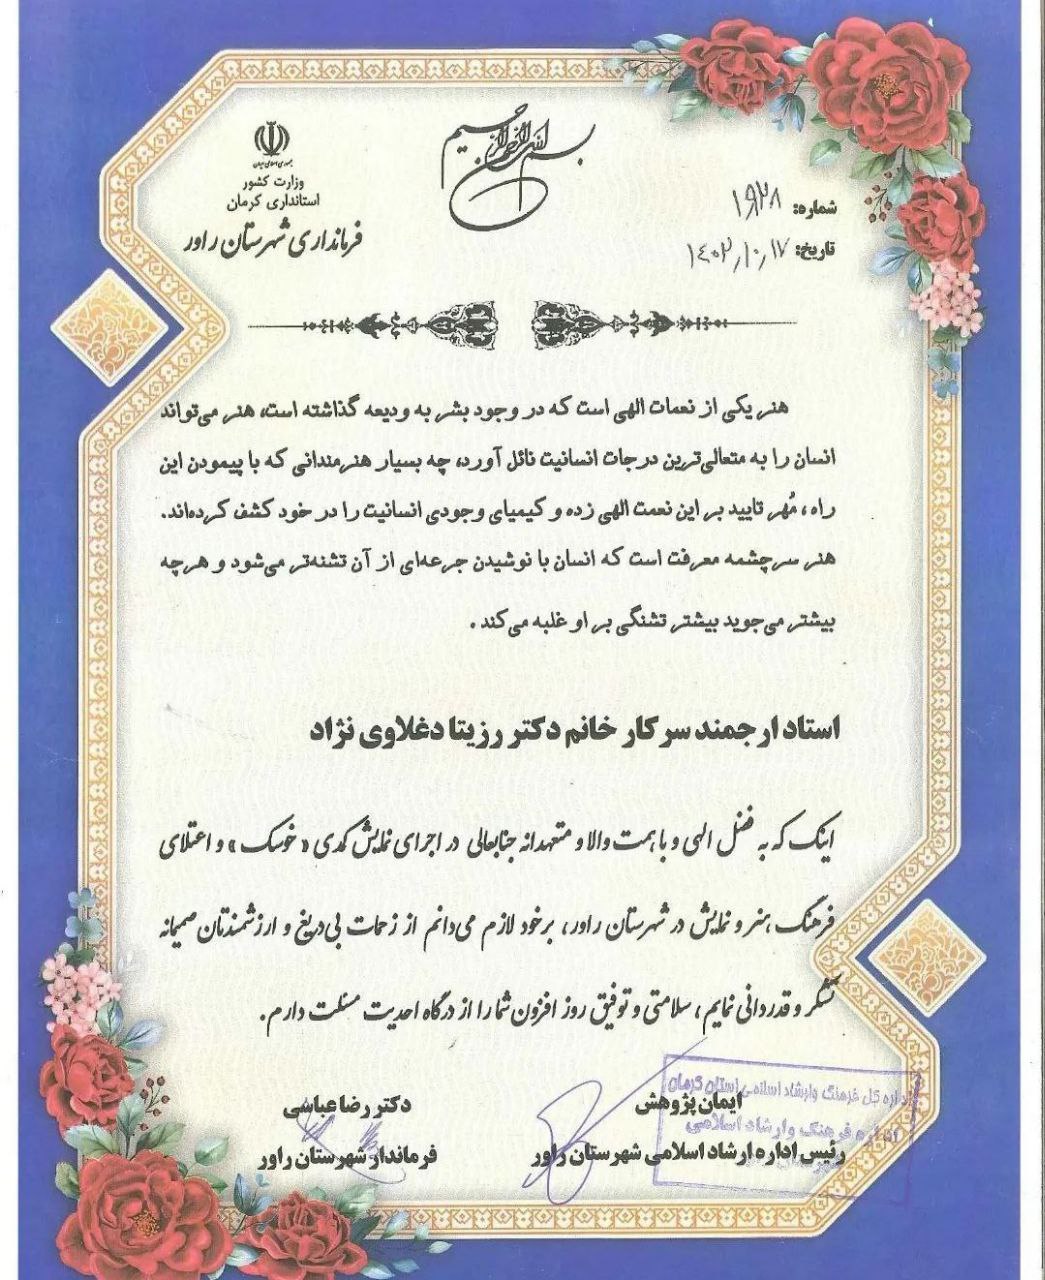 بسم الله الرحمن الرحیم
جمهوری اسلامی ایران
وزارت کشور
استانداری کرمان
فرمانداری شهرستان راور
شماره: ۱۹۲۸
تاریخ: ۱۴۰۲/۱۰/۱۷
هنر یکی از نعمات الهی است که در وجود بشر به ودیعه گذاشته است، هنر می‌تواند
انسان را به متعالی‌ترین درجات انسانیت نائل آورد، چه بسیار هنرمندانی که با پیمودن این
راه، مُهر تایید بر این نعمت الهی زده و کیمیای وجودی انسانیت را در خود کشف کرده‌اند.
هنر سرچشمه معرفت است که انسان با نوشیدن جرعه‌ای از آن تشنه‌تر می‌شود و هرچه
بیشتر می‌جوید بیشتر تشنگی بر او غلبه می‌کند .
استاد ارجمند سرکار خانم دکتر رزیتا دغلاوی نژاد
اینک که به فضل الهی و با همت والا و متعهدانه جنابعالی در اجرای نمایش کمدی « خوسک » و اعتلای
فرهنگ ،هنر و نمایش در شهرستان راور، برخود لازم می‌دانم از زحمات بی‌دریغ و ارزشمندتان صمیمانه
تشکر و قدردانی نمایم ، سلامتی و توفیق روز افزون شما را از درگاه احدیت مسئلت دارم.
اداره کل فرهنگ وارشاد اسلامی استان کرمان
اداره فرهنگ وارشاد اسلامی
ایمان پژوهش
رئیس اداره ارشاد اسلامی شهرستان راور
دکتر رضا عباسی
فرماندار شهرستان راور